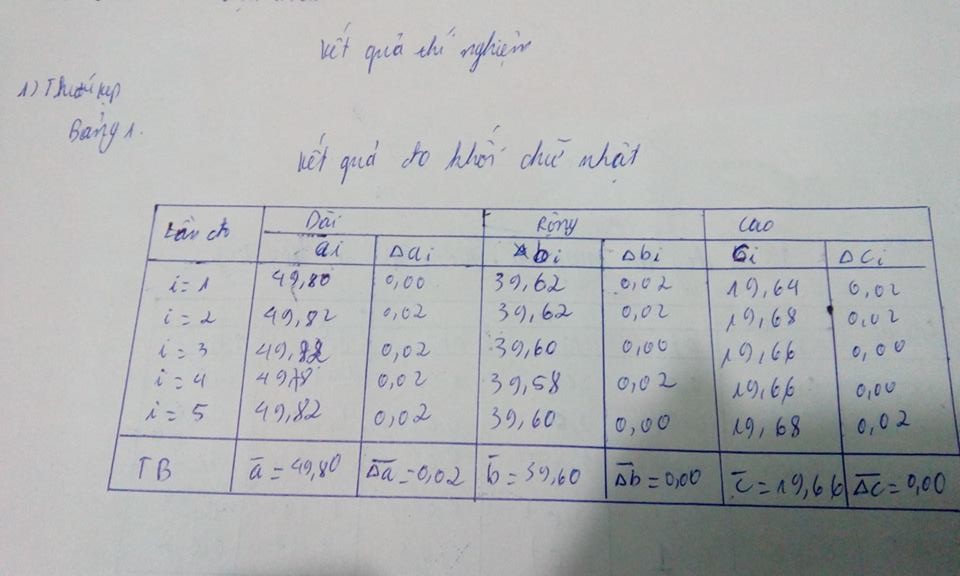 Kết quả thí nghiệm
1) Thước kẹp
Bảng 1.
Kết quả đo khối chữ nhật
Lần đo Dài Rộng Cao
ai Δai bi Δbi Ci ΔCi
i=1 49,80 0,00 39,62 0,02 19,64 0,02
i=2 49,82 0,02 39,62 0,02 19,68 0,02
i=3 49,82 0,02 39,60 0,00 19,66 0,00
i=4 49,8 0,02 39,58 0,02 19,66 0,00
i=5 49,82 0,02 39,60 0,00 19,68 0,02
TB a̅=49,80 Δ̅a=0,02 b̅=39,60 Δ̅b=0,00 c̅=19,66 Δ̅c=0,00